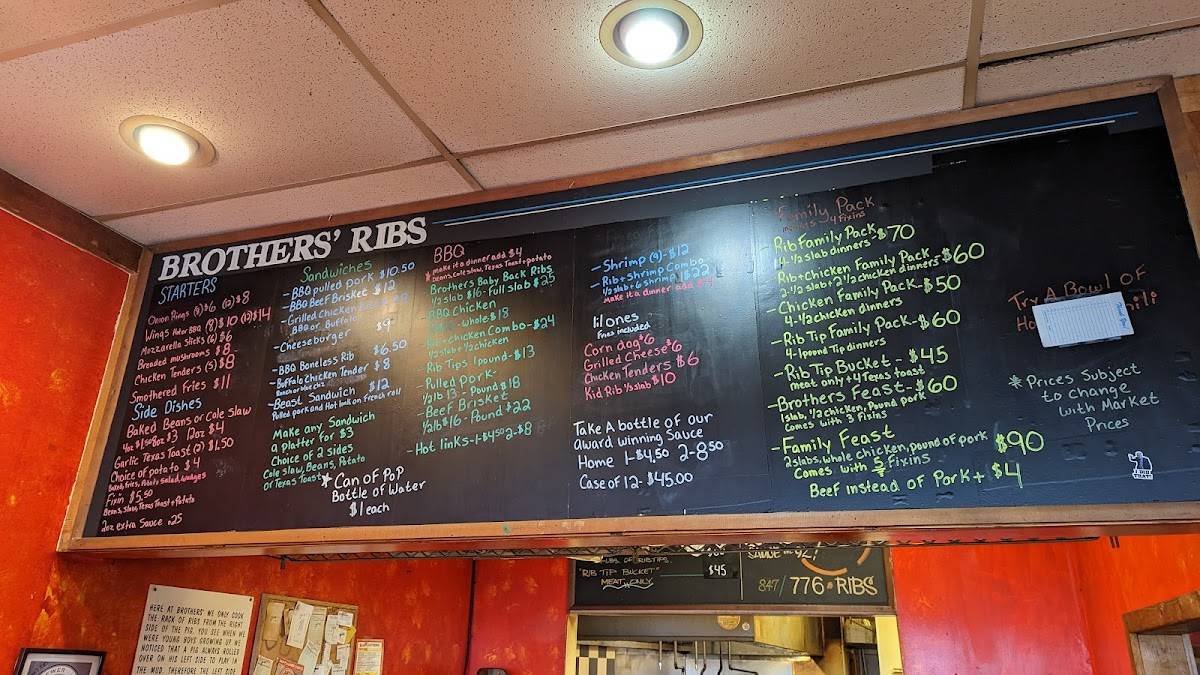 BROTHERS' RIBS
STARTERS
Onion Rings (4)$6 (12)$8
Wings Hot or BBQ (8)$10 (12)$14
Mozzarella Sticks (6) $6
Breaded mushrooms $8
Chicken Tenders (5) $8
Smothered Fries $11
Side Dishes
Baked Beans or Cole Slaw
4oz $1.50 8oz $3 12oz $4
Garlic Texas Toast (2) $1.50
Choice of potato $4
Baked, fries, Potato Salad, wedges
Fixin $5.50
Beans, slaw, Texas Toast + Potato
2oz extra Sauce .25
Sandwiches
- BBQ pulled pork $10.50
- BBQ Beef Brisket $12
- Grilled Chicken
BBQ or Buffalo
- Cheeseburger $9
- BBQ Boneless Rib $6.50
- Buffalo Chicken Tender $8
Ranch or blue chz
- Beast Sandwich $12
Pulled pork and Hot link on french roll
Make any Sandwich
a platter for $3
Choice of 2 sides
Cole slaw, Beans, Potato
or Texas Toast
* Can of Pop
Bottle of Water
$1 each
BBQ
* make it a dinner add $4
beans, cole slaw, Texas Toast + potato
Brothers Baby Back Ribs
1/2 slab $16 - full slab $25
- BBQ Chicken
- whole $18
- Rib + chicken Combo - $24
1/2 slab + 1/2 chicken
- Rib Tips 1 pound - $13
- Pulled pork -
1/2 lb 13 - Pound $18
- Beef Brisket
1/2 lb $16 - Pound $22
- Hot links - 1-$4.50 2-$8
- Shrimp (9) - $12
- Rib + Shrimp Combo
1/2 slab + 6 shrimp $22
make it a dinner add $4
lil ones
Fries included
Corn dog $6
Grilled Cheese $6
Chicken Tenders $6
Kid Rib 1/4 slab $10
Take A bottle of our
award winning Sauce
Home 1-$4.50 2-8.50
Case of 12 - $45.00
Family Pack
4 Fixins
- Rib Family Pack $70
4-1/2 slab dinners
- Rib + Chicken Family Pack $60
2-1/2 slab + 2 1/2 chicken dinners
- Chicken Family Pack - $50
4-1/2 chicken dinners
- Rib Tip Family Pack - $60
4-1 pound Tip dinners
- Rib Tip Bucket - $45
meat only + 4 Texas toast
- Brothers Feast - $60
1 slab, 1/2 chicken, Pound pork
Comes with 3 Fixins
- Family Feast $90
2 slabs, whole chicken, pound of pork
Comes with Fixins
Beef instead of Pork + $4
Try A Bowl OF
* Prices Subject
to change
with Market
Prices
OF RIB TIPS.
"RIB TIP BUCKET"
MEAT ONLY
$45
847/776-RIBS
HERE AT BROTHERS' WE ONLY COOK
THE RACK OF RIBS FROM THE RIGHT
SIDE OF THE PIG. YOU SEE WHEN WE
WERE YOUNG BOYS GROWING UP WE
NOTICED THAT A PIG ALWAYS ROLLED
OVER ON HIS LEFT SIDE TO PLAY IN
THE MUD. THEREFORE THE LEFT SIDE